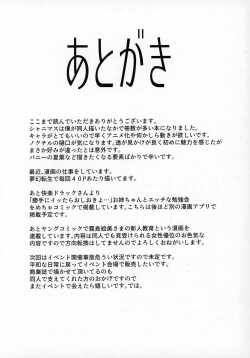 あとがき
ここまで読んでいただきありがとうございます。
シャニマスは僕が同人描いたなかで冊数が多い本になりました。
キャラがとてもいいので早くアニメ化や何かしら動きが欲しいです。
ノクチルの樋口が気になってます。透が見かけが良く初めに魅力を感じたが
まさか好みが違ったとは意外です。
バニーの夏葉など描きたくなる要素ばかりで幸せです。
最近、漫画の仕事をしています。
夢幻転生で毎回40Pあたり描いてます。
あと快楽ドラックさんより
「勝手にイッたらおしおきよ…♡」お姉ちゃんとエッチな勉強会
をめちゃコミックで掲載しています。こちらは後ほど別の漫画アプリで
掲載予定です。
あとヤングコミックで霧島絵美さまの新人教育という漫画を
連載しています。内容は同人でも見受けられる女性優位のお色気な
内容ですので方向転換はしてませんのでよろしくおねがいします。
次回はイベント開催事態危うい状況ですので未定です。
平和な日常に戻ってイベント会場で販売したいです。
商業誌で描かせて頂いてるのも
同人で支えてくれた方のおかげですので
またイベント出れたらいいなぁ…では。